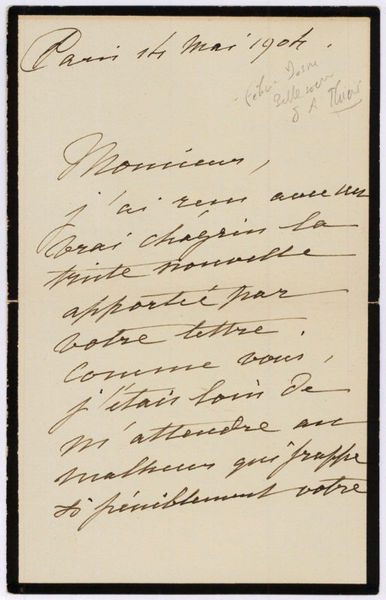 Paris 14 Mai 1904.
belle soeur
A Thiers
Monsieur,
j'ai reçu avec un
vrai chagrin la
triste nouvelle
apportée par
votre lettre.
Comme vous,
j'étais loin de
m'attendre au
malheur qui frappe
si péniblement votre